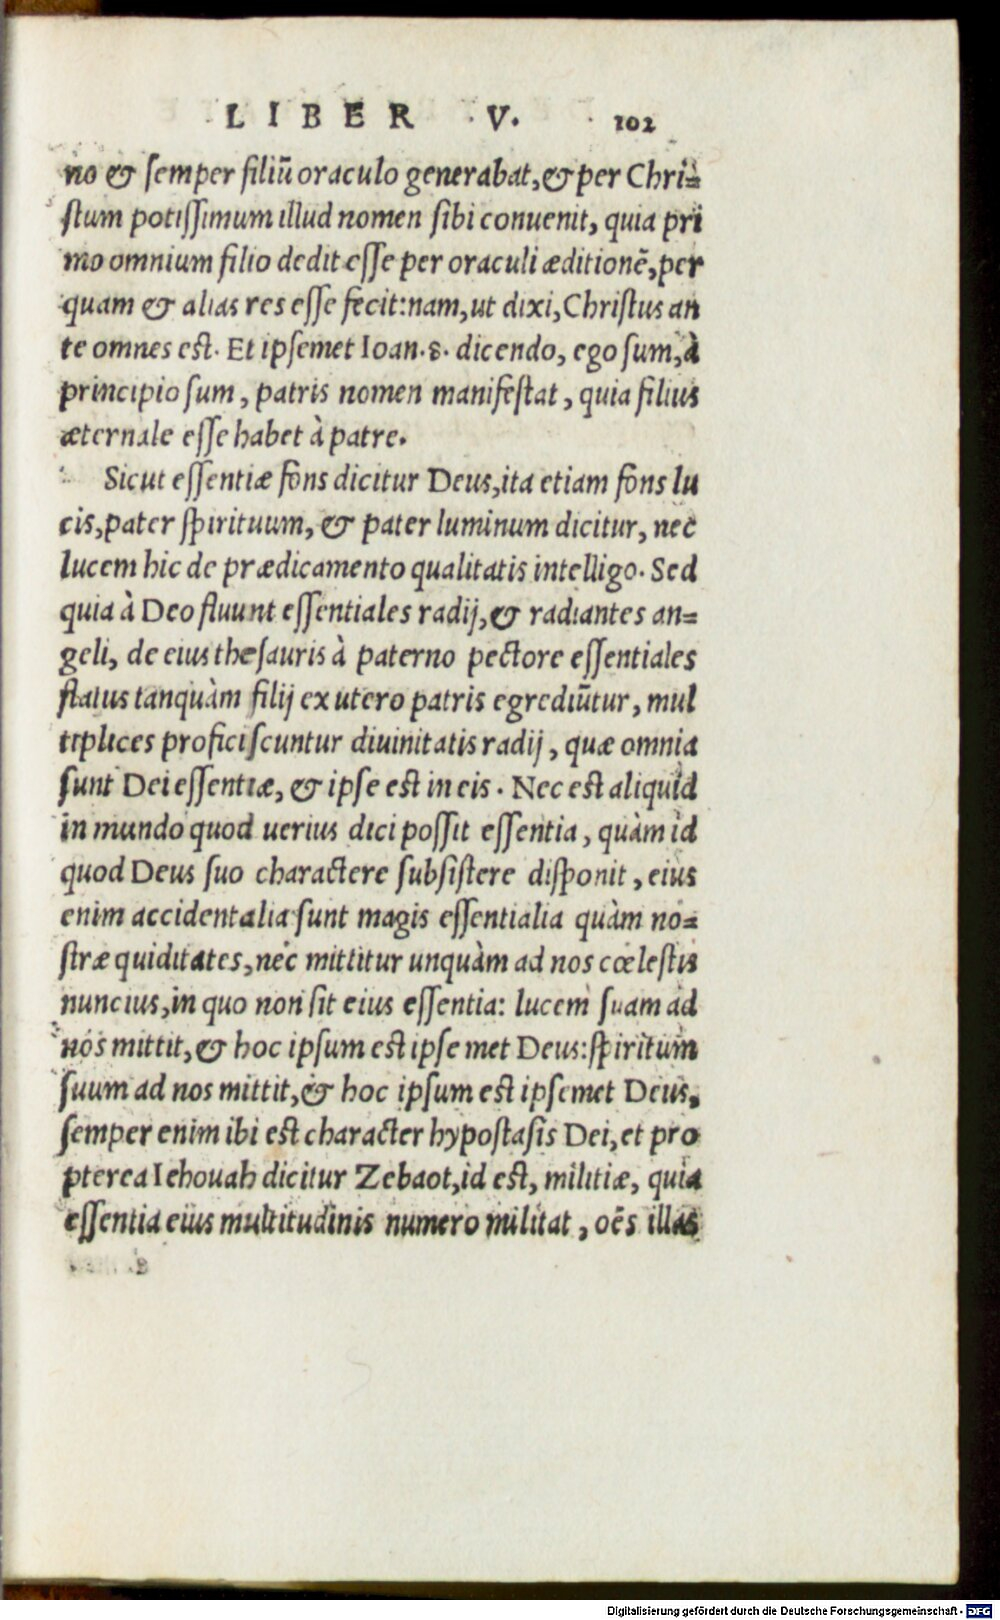 LIBER V. 102
no & semper filiũ oraculo generabat, & per Chri=
stum potissimum illud nomen sibi conuenit, quia pri
mo omnium filio dedit esse per oraculi æditionẽ, per
quam & alias res esse fecit: nam, ut dixi, Christus an
te omnes est. Et ipsemet Ioan.8. dicendo, ego sum, à
principio sum, patris nomen manifestat, quia filius
æternale esse habet à patre.
Sicut essentiæ fons dicitur Deus, ita etiam fons lu
cis, pater spirituum, & pater luminum dicitur, nec
lucem hic de prædicamento qualitatis intelligo. Sed
quia à Deo fluunt essentiales radij, & radiantes an=
geli, de eius thesauris à paterno pectore essentiales
flatus tanquàm filij ex utero patris egrediũtur, mul
tiplices proficiscuntur diuinitatis radij, quæ omnia
sunt Dei essentiæ, & ipse est in eis. Nec est aliquid
in mundo quod uerius dici possit essentia, quàm id
quod Deus suo charactere subsistere disponit, eius
enim accidentalia sunt magis essentialia quàm no=
stræ quiditates, nec mittitur unquàm ad nos cœlestis
nuncius, in quo non sit eius essentia: lucem suam ad
nos mittit, & hoc ipsum est ipse met Deus: spiritum
suum ad nos mittit, & hoc ipsum est ipsemet Deus,
semper enim ibi est character hypostasis Dei, et pro
pterea Iehouah dicitur Zebaot, id est, militiæ, quia
essentia eius multitudinis numero militat, oẽs illas
Digitalisierung gefördert durch die Deutsche Forschungsgemeinschaft - DFG